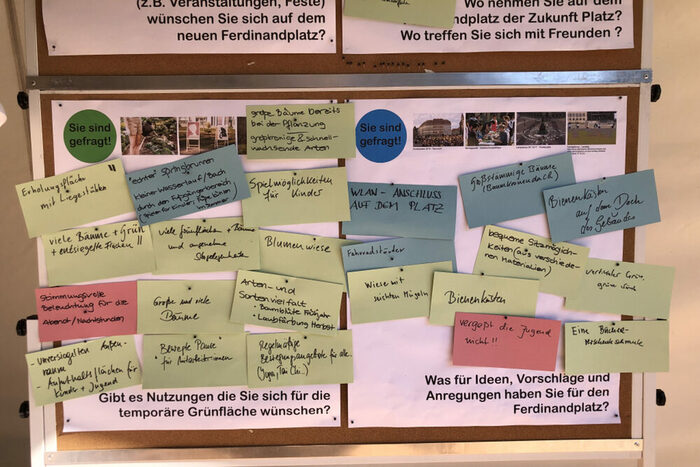 (z.B. Veranstaltungen, Feste)
wünschen Sie sich auf dem
neuen Ferdinandplatz?
Wo nehmen Sie auf dem
Ferdinandplatz der Zukunft Platz?
Wo treffen Sie sich mit Freunden ?
Sie sind
gefragt!
große Bäume bereits
bei der Pflanzung
großkronige & schnell-
wachsende Arten
Erholungsfläche
mit Liegestühle
"echter" Springbrunnen
kleiner Wasserlauf/Bach
durch den Fußgängerbereich
im Sommer
Spielmöglichkeiten
für Kinder
viele Bäume + Grün
+ entsiegelte Flächen !!
viele Grünflächen + Bäume
und angenehme
Blumenwiese
Stimmungsvolle
Beleuchtung für die
Abend-/Nachtstunden
Große und viele
Bäume
Arten- und
Sortenvielfalt
- Baumblüte Frühjahr
- Laubfärbung Herbst
- unversiegelten Außen-
räume
- Aufenthaltsflächen für
Kinder + Jugend
"Bewegte Pause"
für Mitarbeiter:innen
Regelmäßige
Bewegungsangebote für alle..
(Yoga, Tai Chi...)
Gibt es Nutzungen die Sie sich für die
temporäre Grünfläche wünschen?
Sie sind
gefragt!
WLAN - ANSCHLUSS
AUF DEM PLATZ
Großstämmige Bäume
(Baumkronendach)
Bienenkästen
auf dem Dach
des Gebäudes
Fahrradständer
bequeme Sitzmöglich-
keiten (aus verschiede-
nen Materialien)
vertikales Grün,
grüne Wand
Wiese mit
leichten Hügeln
Bienenkästen
vergeßt die Jugend
nicht !!
Eine Bücher-
Was für Ideen, Vorschläge und
Anregungen haben Sie für den
Ferdinandplatz?